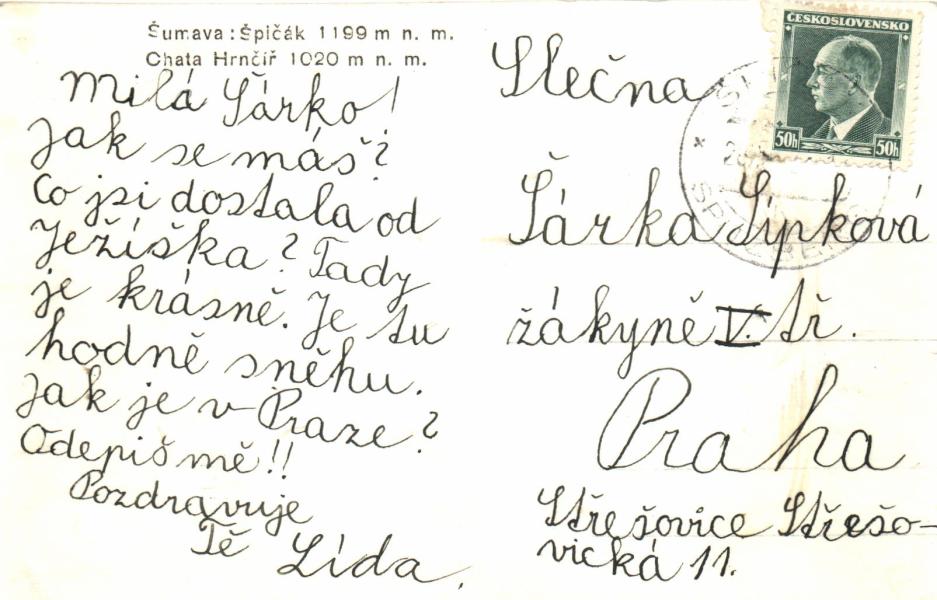 Šumava: Špičák 1199 m n. m.
Chata Hrnčíř 1020 m n. m.
Milá Šárko!
Jak se máš?
Co jsi dostala od
Ježíška? Tady
je krásně. Je tu
hodně sněhu.
Jak je v Praze?
Odepiš mě!!
Pozdravuje
Tě Lída.
Slečna
Šárka Šípková
žákyně V. tř.
Praha
Střešovice Střešo-
vická 11.
ČESKOSLOVENSKO
50h 50h